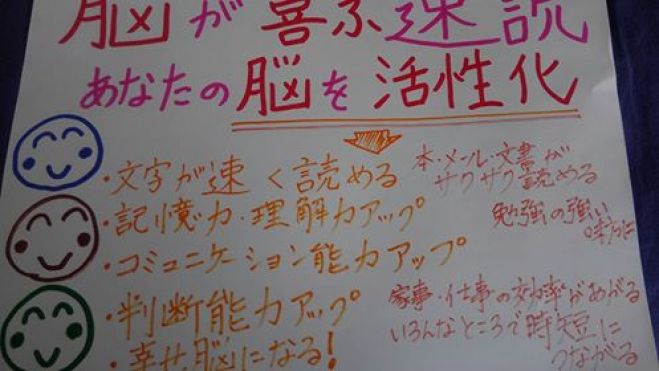 脳が喜ぶ速読
あなたの脳を活性化
・文字が速く読める
本・メール・文書が
サクサク読める
・記憶力・理解力アップ
勉強の強い
味方に
・コミュニケーション能力アップ
・判断能力アップ
家事・仕事の効率があがる
いろんなところで時短に
つながる
・幸せ脳になる!